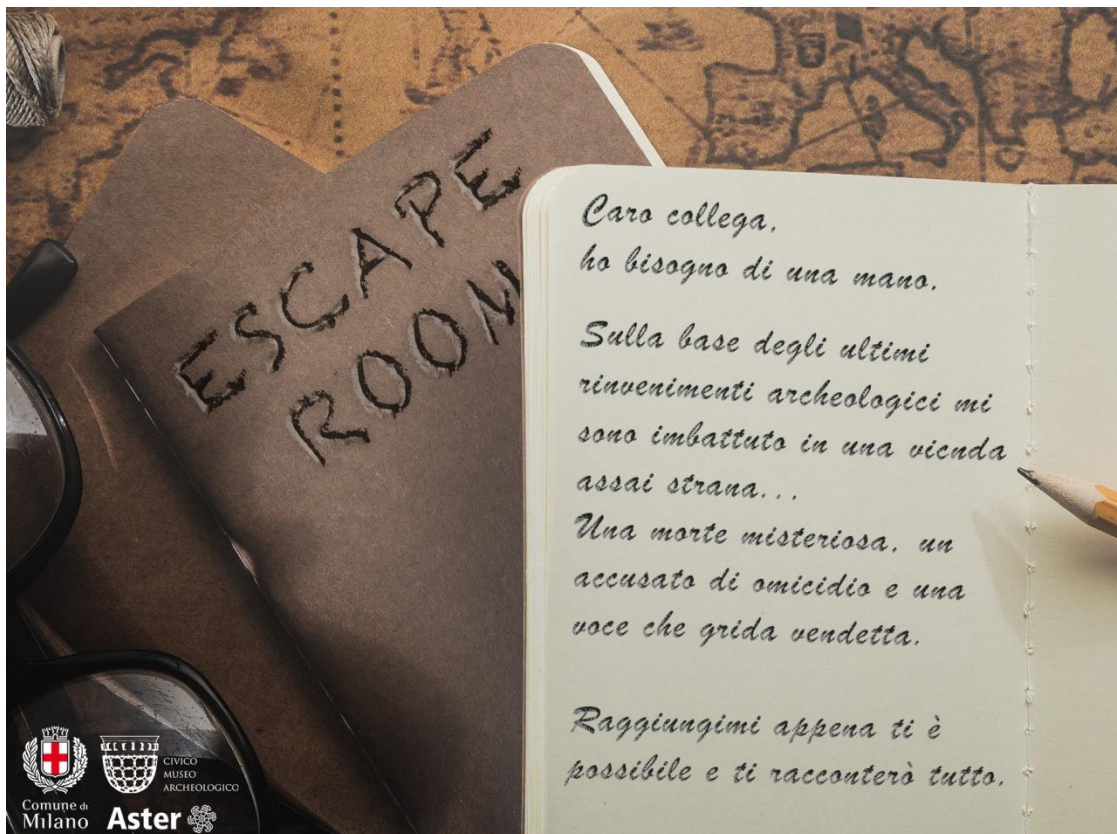 ESCAPE
ROOM
Caro collega,
ho bisogno di una mano.
Sulla base degli ultimi
rinvenimenti archeologici mi
sono imbattuto in una vicnda
assai strana...
Una morte misteriosa, un
accusato di omicidio e una
voce che grida vendetta.
Raggiungimi appena ti è
possibile e ti racconterò tutto.
Comune di
Milano
CIVICO
MUSEO
ARCHEOLOGICO
Aster